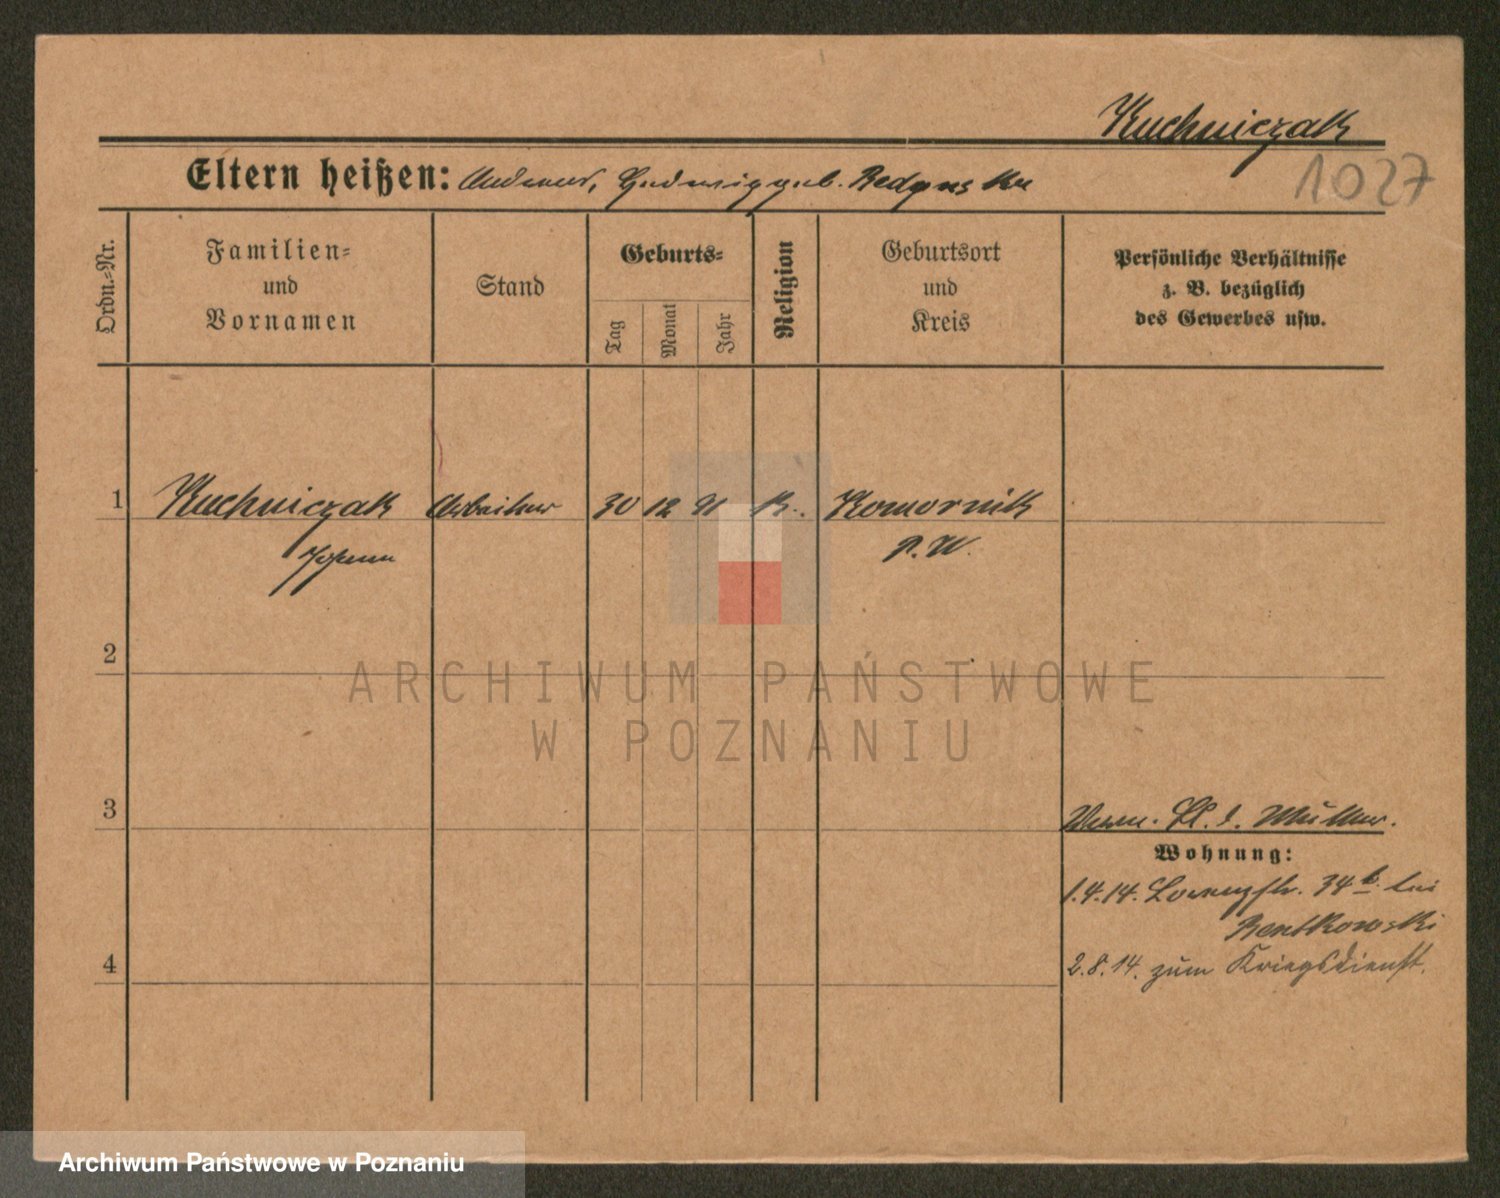 Kuchniczak
1027
Eltern heißen: Andreas, Hedwig geb. Redynska
Ordn.-Nr.
Familien-
und
Vornamen
Stand
Geburts-
Tag
Monat
Jahr
Religion
Geburtsort
und
Kreis
Persönliche Verhältnisse
z. B. bezüglich
des Gewerbes usw.
1 Kuchniczak Arbeiter 30 12 91 K. Komornik
Johann P. W.
2
3
d. Müller.
Wohnung:
1.4.14. 34b. bei
Rentkowski
4
2.8.14. zum Kriegsdienst.
ARCHIWUM PAŃSTWOWE
W POZNANIU
Archiwum Państwowe w Poznaniu